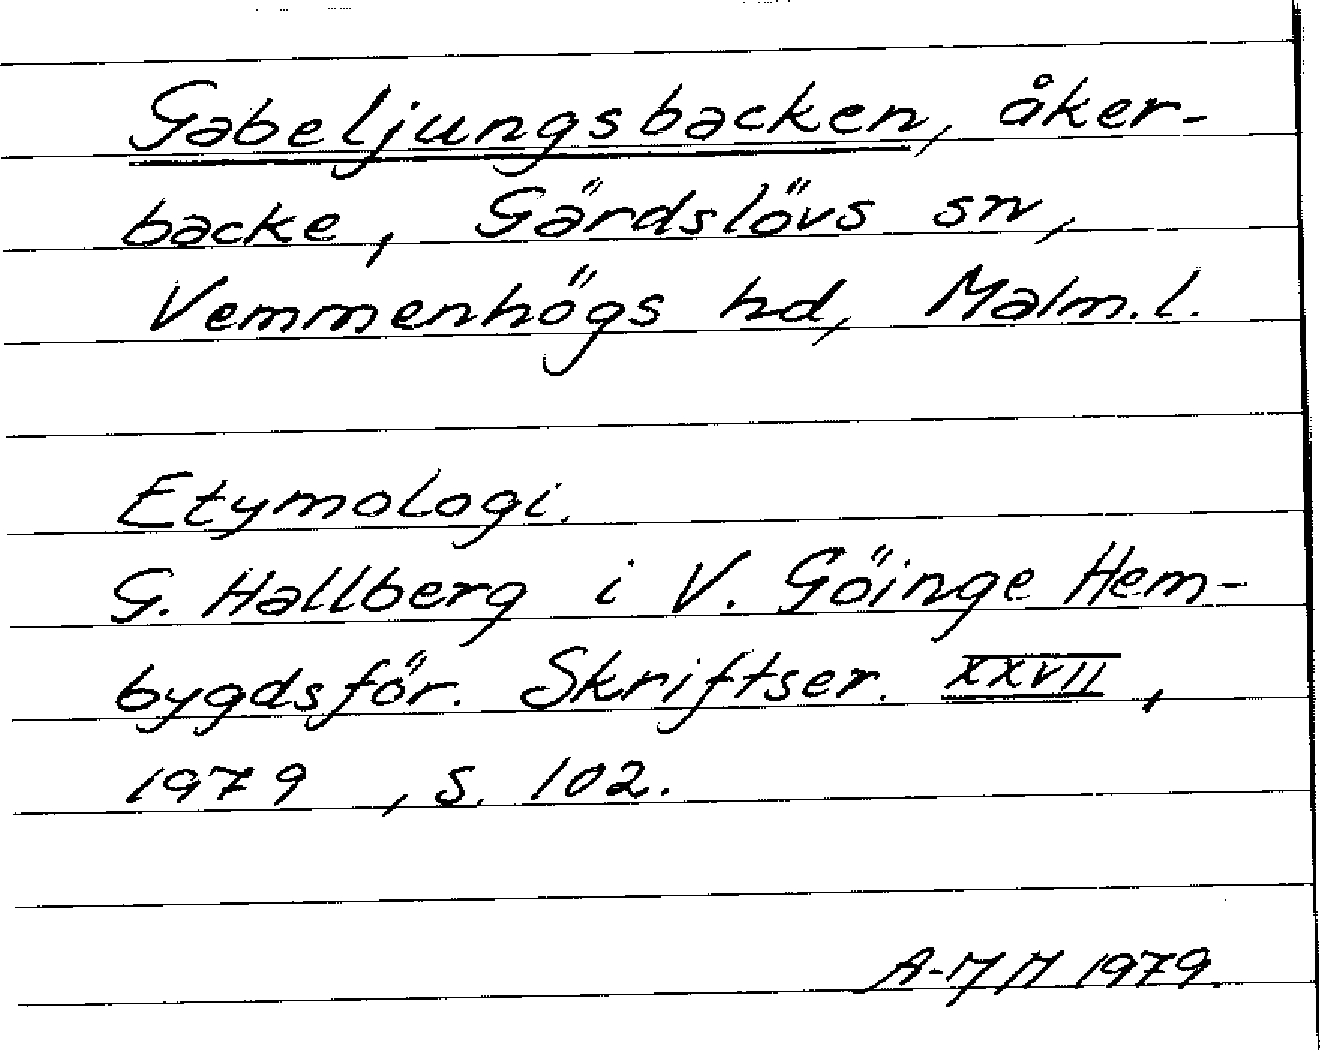 Gabeljungsbacken, åker-
backe, Gärdslövs sn,
Vemmenhögs hd, Malm.l.
Etymologi.
G. Hallberg i V. Göinge Hem-
bygdsför. Skriftser. XXVII,
1979, s. 102.
A-M M 1979.